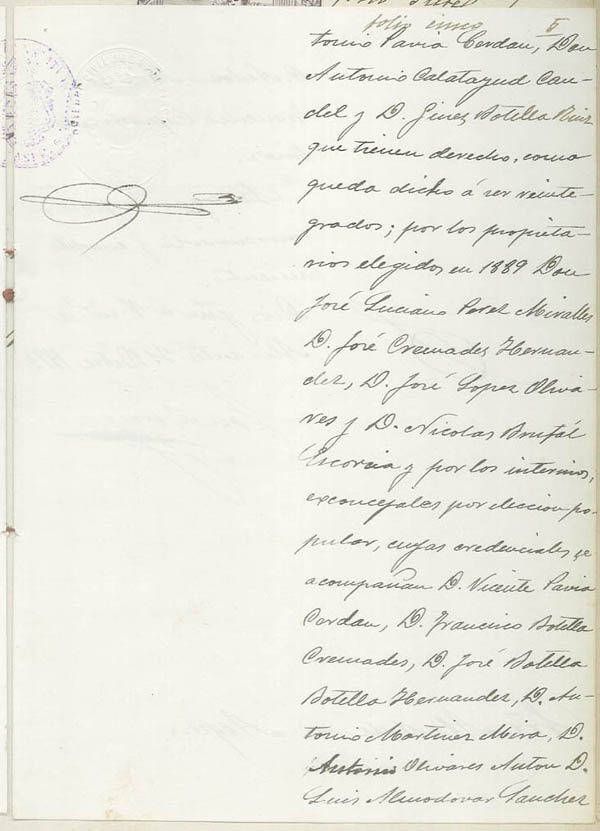 folio cinco 5
tonio Pavia Cerdan, Don
Antonio Calatayud Can-
del y D. Ginez Botella Ruiz
que tienen derecho, como
queda dicho á ser reinte-
grados; por los propieta-
rios elegidos en 1889 Don
José Luciano Perez Miralles
D. José Cremades Hernan-
dez, D. José Lopez Oliva-
res y D. Nicolas Brufál
Escorcia y por los interinos,
exconcejales por eleccion po-
pular, cuyas credenciales se
acompañan D. Vicente Pavia
Cerdan, D. Francisco Botella
Cremades, D. José Botella
Botella Hernandez, D. An-
tonio Martinez Mira, D.
Antonio Olivares Anton D.
Luis Almodovar Sanchez